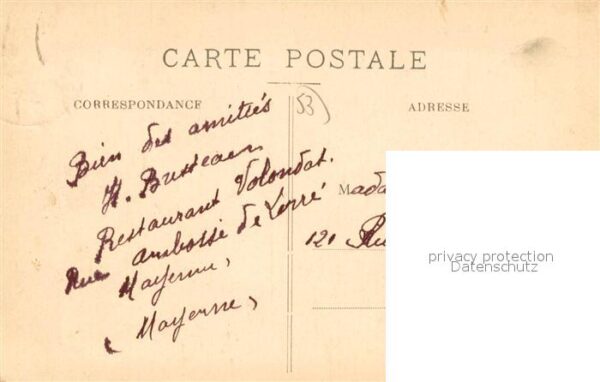 CARTE POSTALE
CORRESPONDANCE
53
ADRESSE
Bien des amitiés
H. Busseau
Restaurant Volondat.
Rue ambossé de Lorré
Mayenne,
(Mayenne,
Mada
121 Ru
privacy protection
Datenschutz